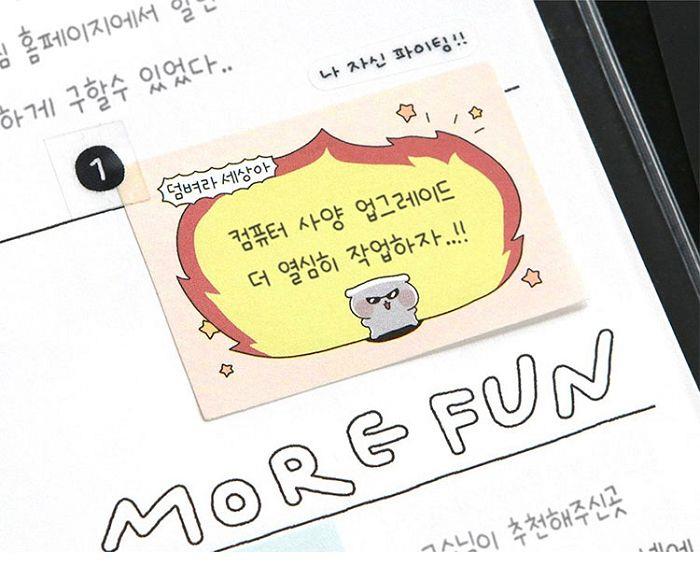 홈페이지에서
하게 구할수 있었다..
나 자신 파이팅!!
1
덤벼라 세상아
컴퓨터 사양 업그레이드
더 열심히 작업하자...!!
MORE FUN
추천해주신곳